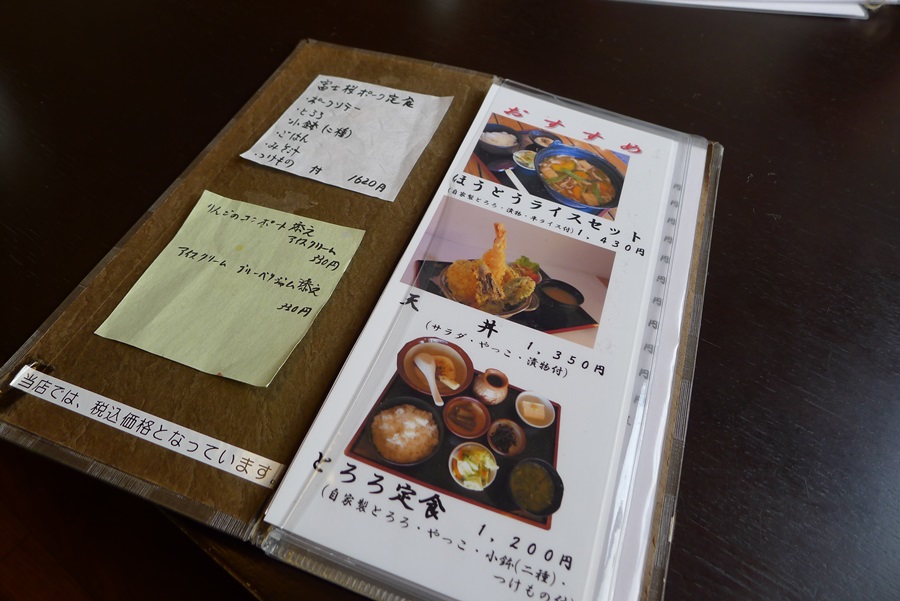 富士桜ポーク定食
ポークソテー
・とろろ
・小鉢(二種)
・ごはん
・みそ汁
・つけもの 付 1620円
りんごのコンポート添え
アイスクリーム
330円
アイスクリーム ブルーベリージャム添え
330円
当店では、税込価格となっています。
おすすめ
ほうとうライスセット
(自家製とろろ・漬物・半ライス付)1,430円
天丼
1,350円
(サラダ・やっこ・漬物付)
とろろ定食
1,200円
(自家製とろろ・やっこ・小鉢(二種)・
つけもの付)